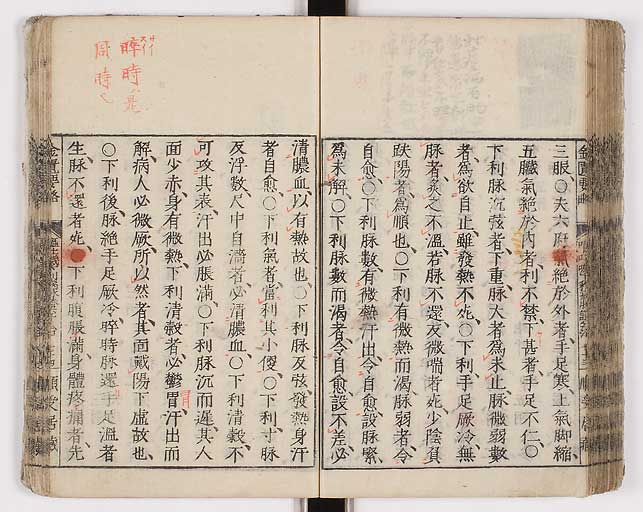 三服○夫六府氣絶於外者手足寒上氣脚縮
五臟氣絶於内者利不禁下甚者手足不仁○
下利脉沉弦者下重脉大者爲未止脉微弱數
者爲欲自止雖發熱不死○下利手足厥冷無
脉者灸之不溫若脉不還反微喘者死少陰負
趺陽者爲順也○下利有微熱而渴脉弱者令
自愈○下利脉數有微熱汗出令自愈設脉緊
爲未解○下利脉數而渴者令自愈設不差必
清膿血以有熱故也○下利脉反弦發熱身汗
者自愈○下利氣者當利其小便○下利寸脉
反浮數尺中自濇者必清膿血○下利清穀不
可攻其表汗出必脹滿○下利脉沉而遲其人
面少赤身有微熱下利清穀者必鬱冒汗出而
解病人必微厥所以然者其面戴陽下虚故也
○下利後脉絶手足厥冷晬時脉還手足溫者
生脉不還者死○下利腹脹滿身體疼痛者先
晬時
周時
金匱要略